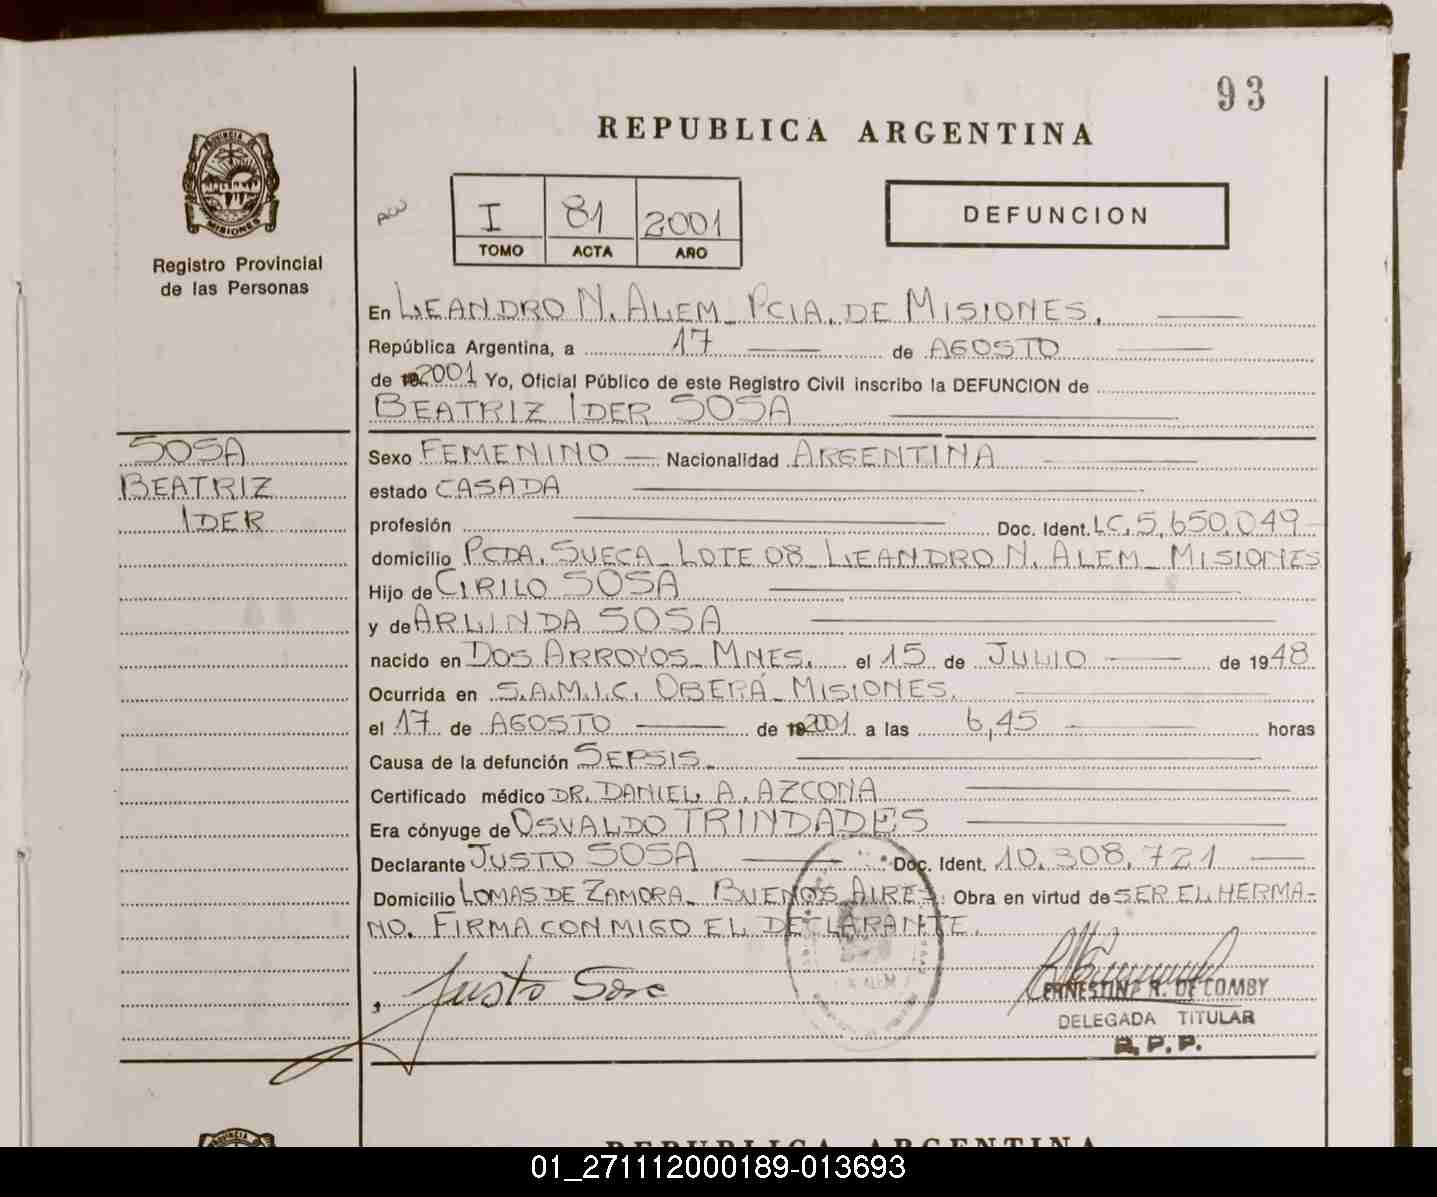 93
REPUBLICA ARGENTINA
PROVINCIA DE
MISIONES
Registro Provincial
de las Personas
I 81 2001
TOMO ACTA AÑO
DEFUNCION
En LEANDRO N. ALEM_ PCIA. DE MISIONES.
República Argentina, a 17 de AGOSTO
de 2001 Yo, Oficial Público de este Registro Civil inscribo la DEFUNCION de
BEATRIZ IDER SOSA
SOSA
BEATRIZ
IDER
Sexo FEMENINO Nacionalidad ARGENTINA
estado CASADA
profesión Doc. Ident. LC. 5,650,049
domicilio PCDA. SUECA_ LOTE 08_ LEANDRO N. ALEM_ MISIONES
Hijo de CIRILO SOSA
y de ARLINDA SOSA
nacido en DOS ARROYOS_ MNES. el 15 de JULIO de 1948
Ocurrida en S.A.M.I.C. OBERÁ_ MISIONES.
el 17 de AGOSTO de 2001 a las 6,45 horas
Causa de la defunción SEPSIS.
Certificado médico DR. DANIEL A. AZCONA
Era cónyuge de OSVALDO TRINDADES
Declarante JUSTO SOSA Doc. Ident. 10.308.721
Domicilio LOMAS DE ZAMORA_ BUENOS AIRES. Obra en virtud de SER EL HERMA-
NO. FIRMA CONMIGO EL DECLARANTE.
Justo Sosa
ERNESTINA R. DE COMBY
DELEGADA TITULAR
R.P.P.
REPUBLICA ARGENTINA
01_271112000189-013693